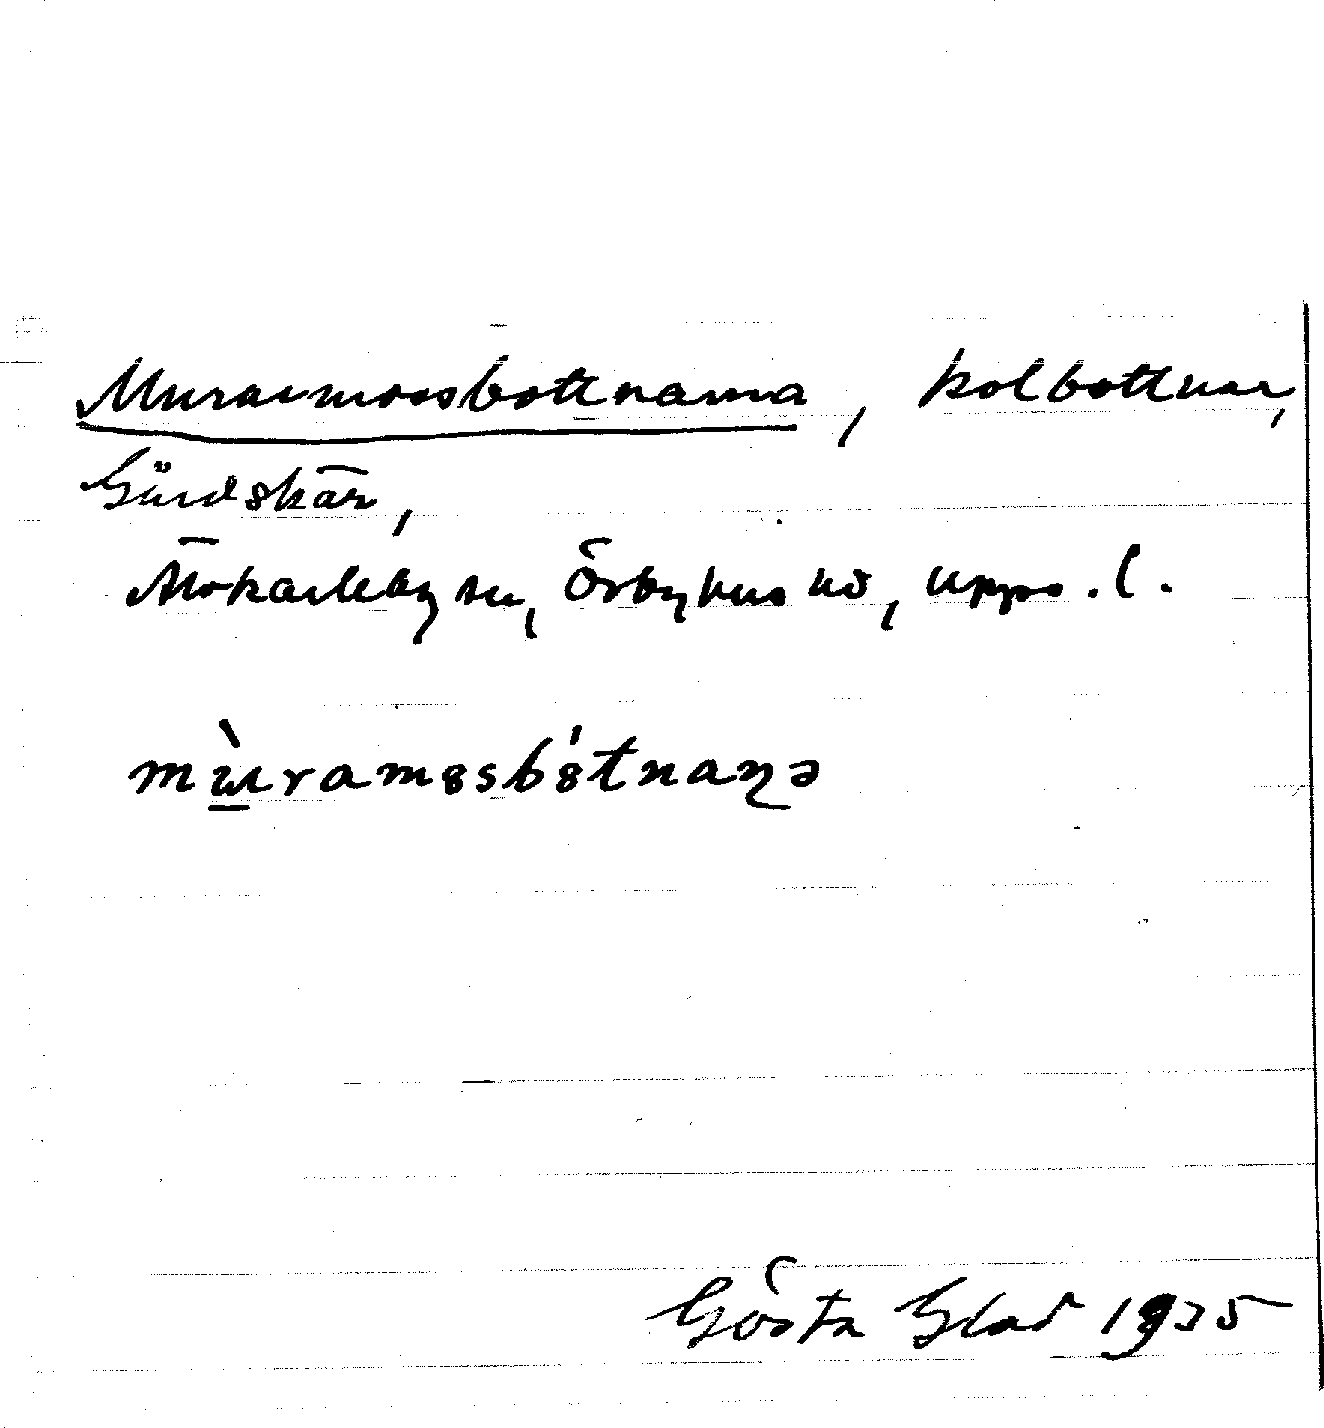 Murarmossbottnarna, kolbottnar,
Gårdskär,
Älvkarleby sn, Örbyhus hd, Upps. l.
mùramosbótnaṇə
Gösta Glad 1935